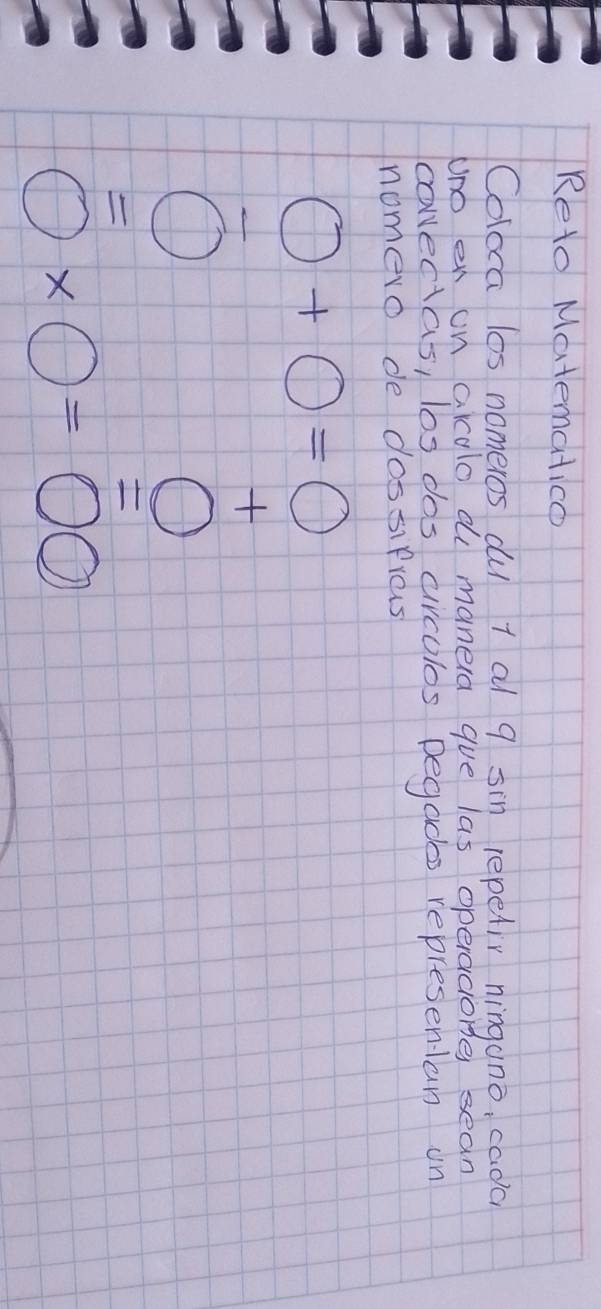 Reto Matematico
Coloca los nomeros del 1 al 9 sin repetir ninguno, cada
uno en un circulo de manera que las operaciones sean
correctas, los dos circulos pegados representan un
nomero de dos sifras
+ =
- +
= =
× =